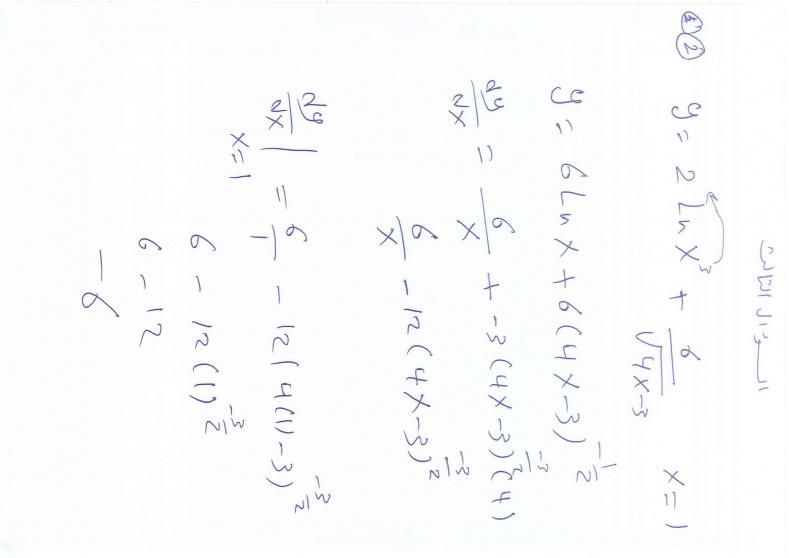 السؤال الثالث
② y = 2 Ln x³ + 6/√(4x-3) x=1
y = 6 Ln x + 6(4x-3)^(-1/2)
dy/dx = 6/x + -3(4x-3)^(-3/2)(4)
6/x - 12(4x-3)^(-3/2)
dy/dx|x=1 = 6/1 - 12(4(1)-3)^(-3/2)
6 - 12(1)^(-3/2)
6 - 12
-6